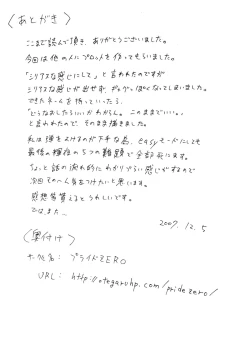 (あとがき)
ここまで読んで頂き、ありがとうございました。
今回は他の人にプロットを作ってもらいました。
「シリアスな感じにして」と言われたのですが
シリアスな感じが出せず、ギャグっぽくなってしまいました。
できたネームを持っていったら、
「どうなおしたらいいかわからん。このままでいい。」
と言われたので、そのまま描きました。
私は弾をよけるのが下手な為、easyモードにしても
最後の輝夜の5つの難題で全部死にます。
ちょっと話の流れ的にわかりづらい感じがするので
次回そのへん気をつけたいと思います。
感想等貰えるとうれしいです。
ではまた
2007.12.5
(奥付け)
サークル名: プライドZERO
URL: http://otegaruhp.com/pridezero/